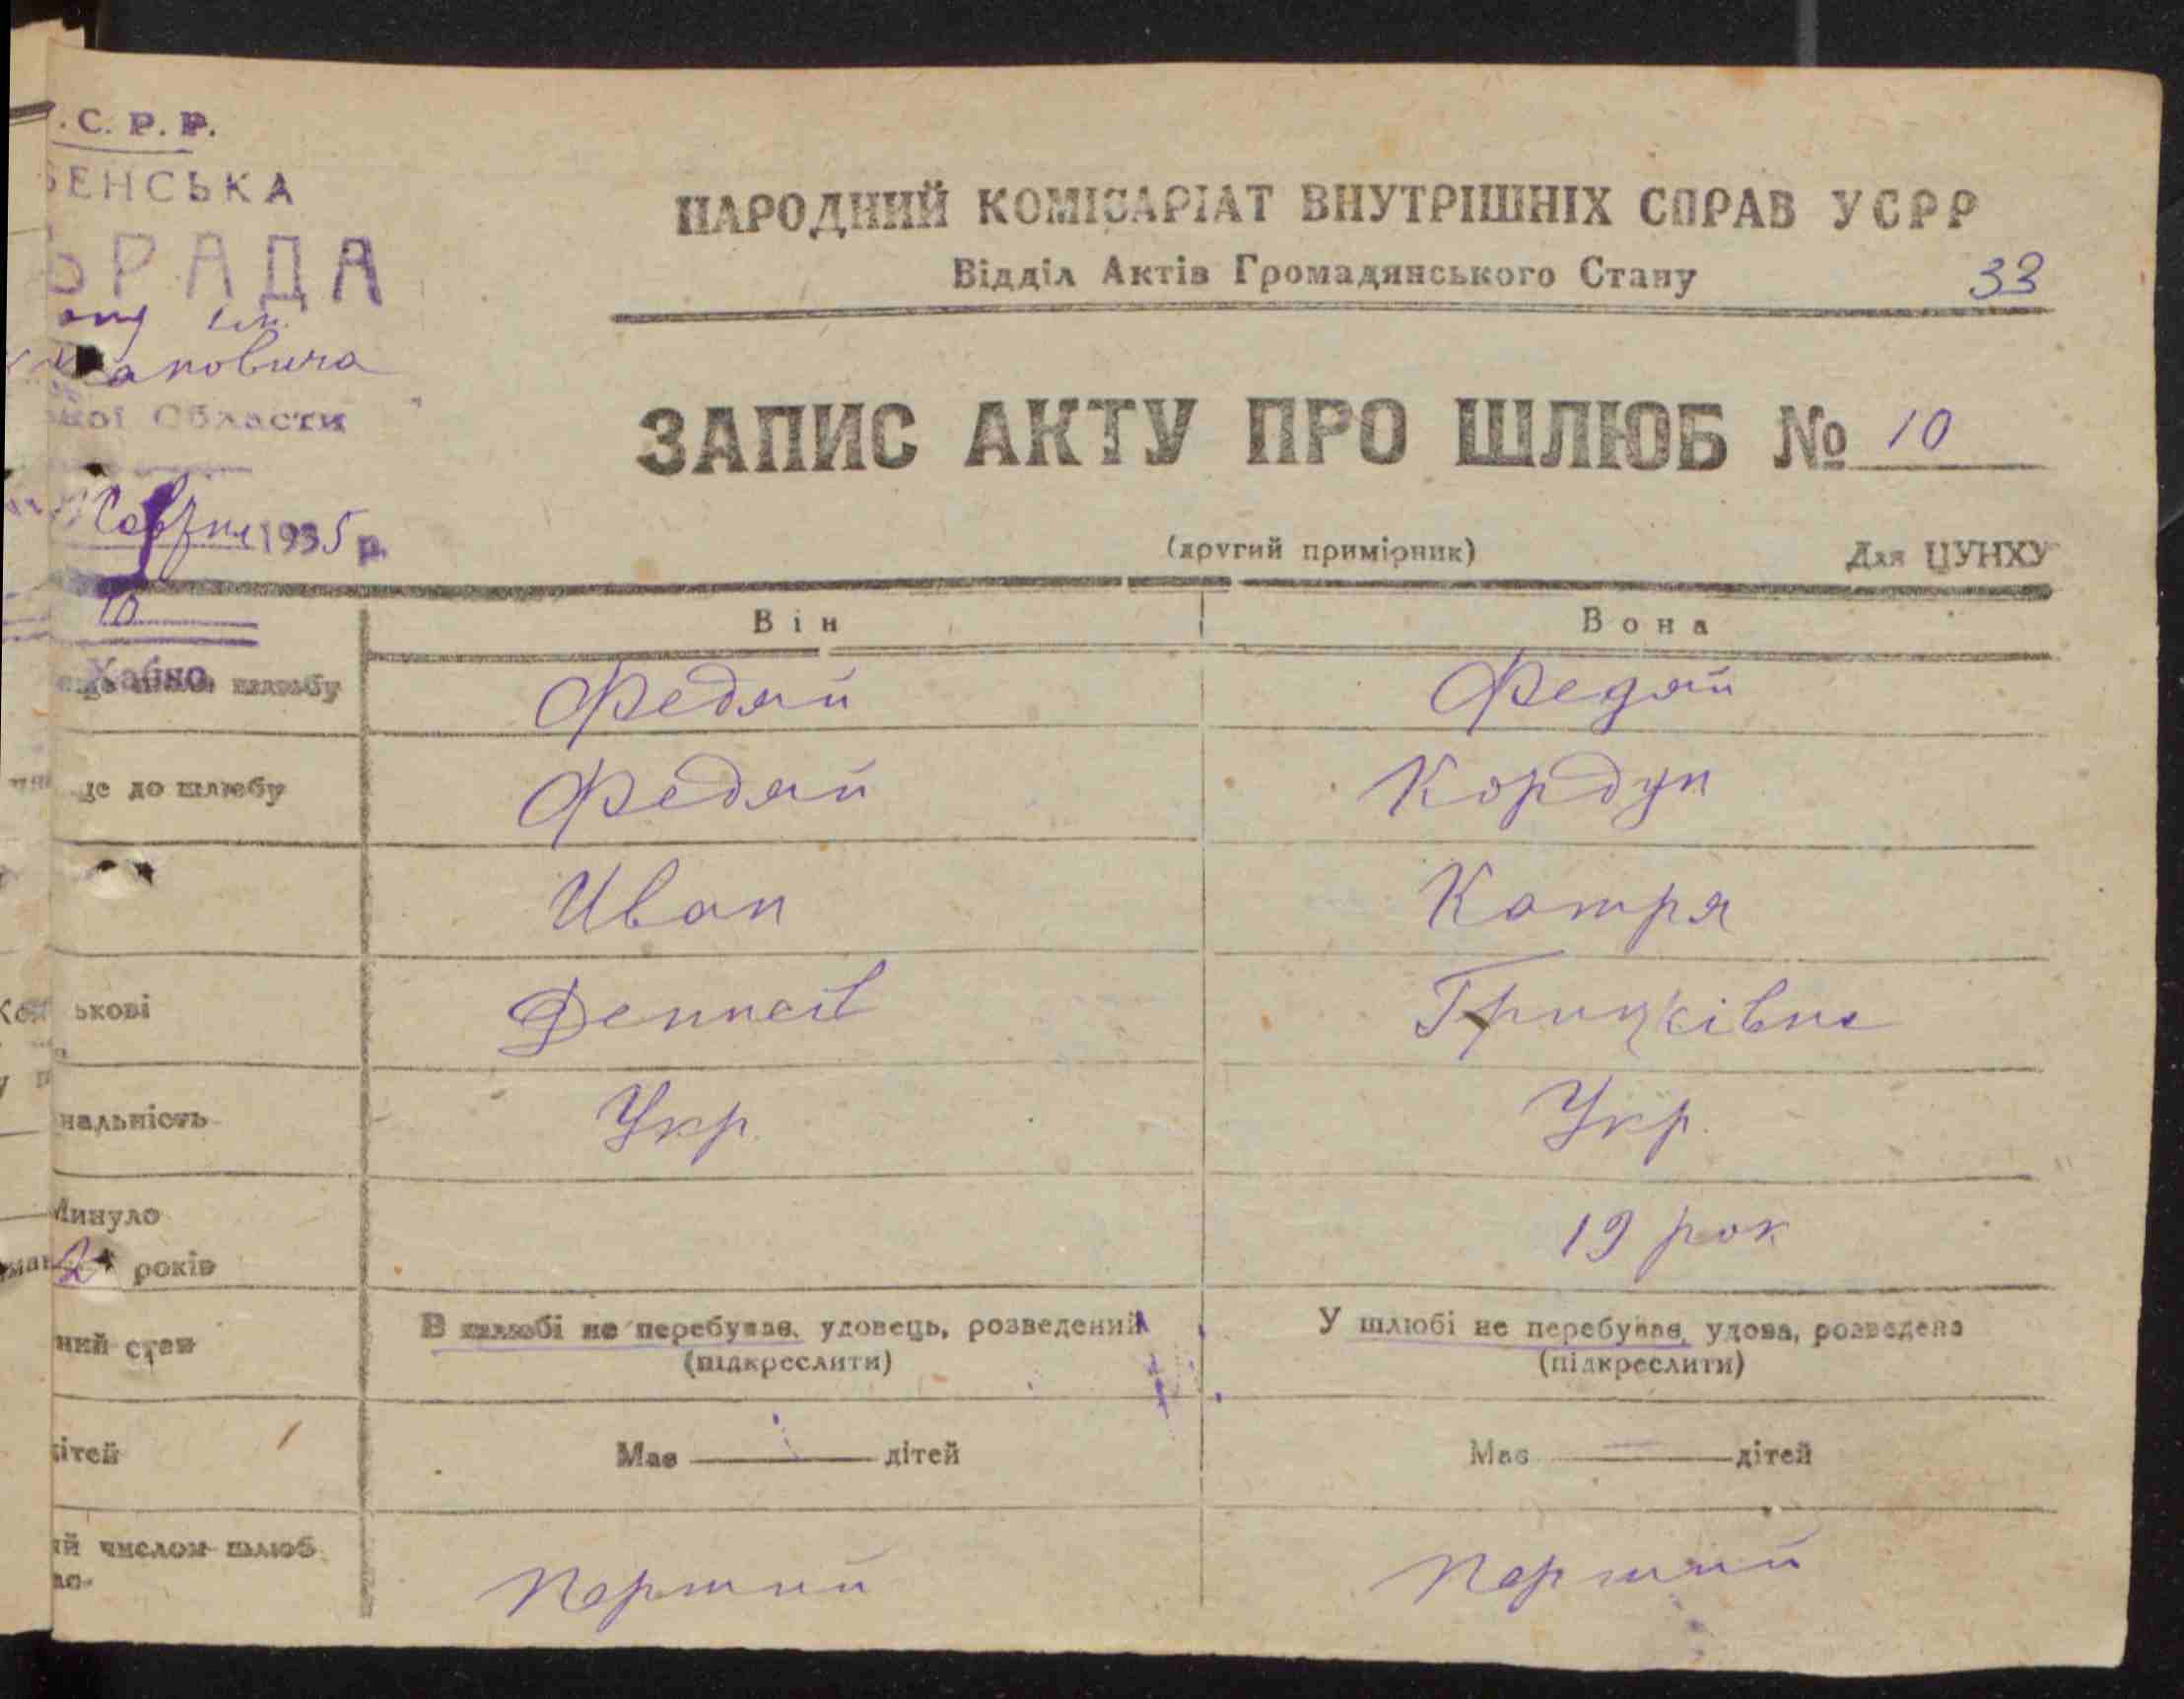 . С. Р. Р.
БЕНСЬКА
ЬРАДА
ім.
ановича
кої Области
1935 р.
10
Хабно.
НАРОДНИЙ КОМІСАРІАТ ВНУТРІШНІХ СПРАВ УСРР
Відділ Актів Громадянського Стану 33
ЗАПИС АКТУ ПРО ШЛЮБ № 10
(другий примірник) Для ЦУНХУ
Він Вона
шлюбу Федяй Федяй
ще до шлюбу Федяй Кордун
Иван Катря
ькові Денисів Грицківна
нальність Укр. Укр.
Минуло
19 рок
2 років
ний стан В шлюбі не перебував, удовець, розведений У шлюбі не перебувае, удова, розведена
(підкреслити) (підкреслити)
дітей Має дітей Має дітей
ий числом шлюб
Перший Перший